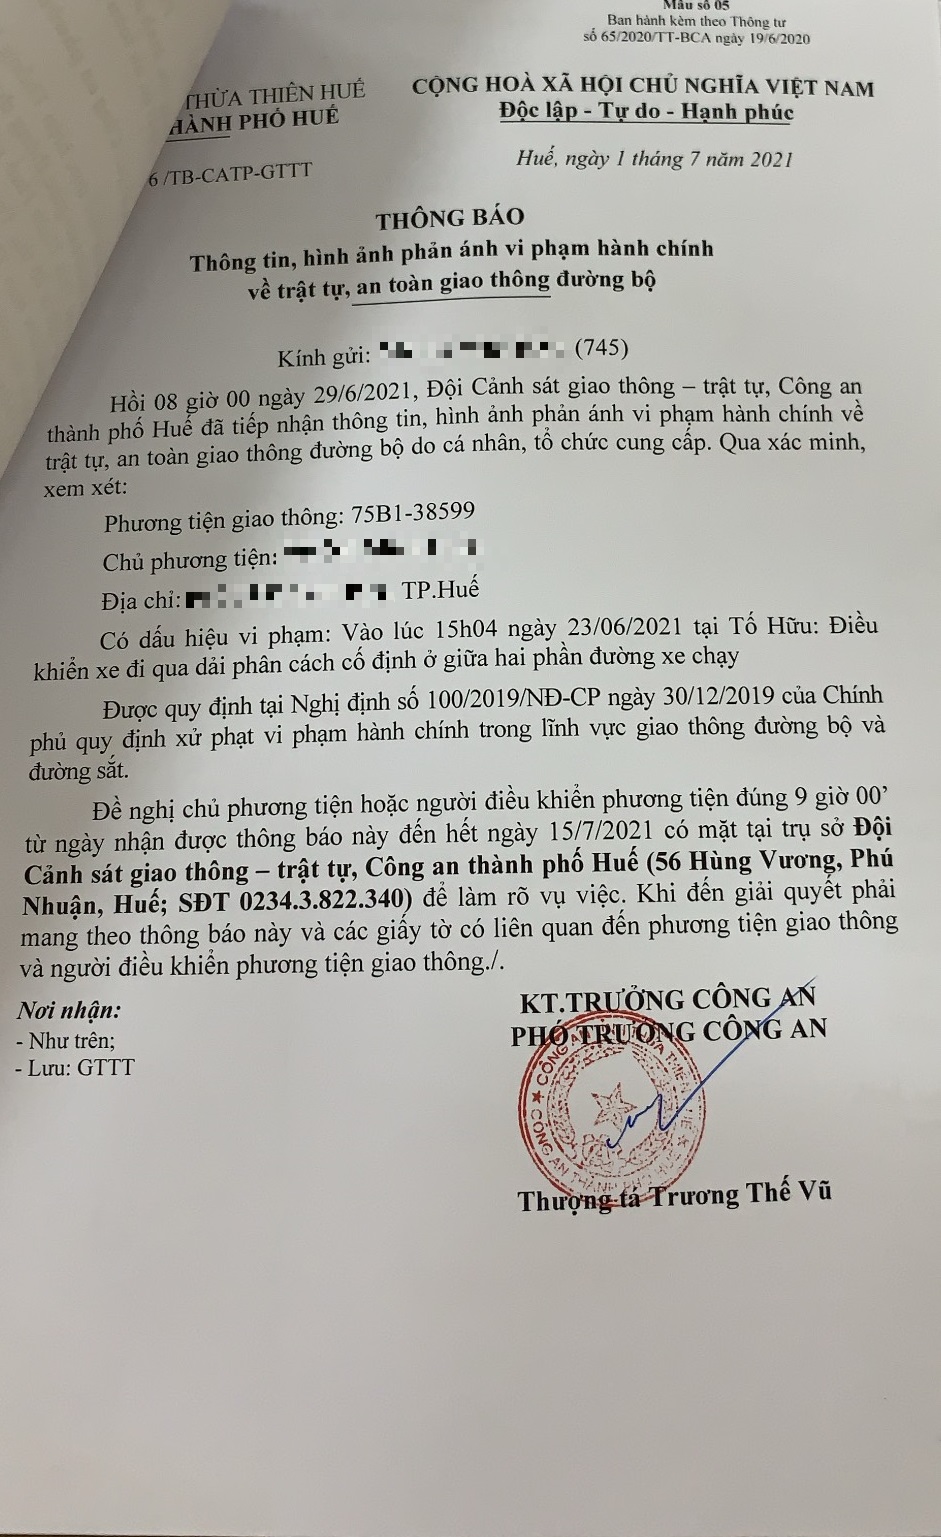 Mẫu số 05
Ban hành kèm theo Thông tư
số 65/2020/TT-BCA ngày 19/6/2020
THỪA THIÊN HUẾ
HÀNH PHỐ HUẾ
CỘNG HOÀ XÃ HỘI CHỦ NGHĨA VIỆT NAM
Độc lập - Tự do - Hạnh phúc
6 /TB-CATP-GTTT
Huế, ngày 1 tháng 7 năm 2021
THÔNG BÁO
Thông tin, hình ảnh phản ánh vi phạm hành chính
về trật tự, an toàn giao thông đường bộ
Kính gửi: (745)
Hồi 08 giờ 00 ngày 29/6/2021, Đội Cảnh sát giao thông – trật tự, Công an
thành phố Huế đã tiếp nhận thông tin, hình ảnh phản ánh vi phạm hành chính về
trật tự, an toàn giao thông đường bộ do cá nhân, tổ chức cung cấp. Qua xác minh,
xem xét:
Phương tiện giao thông: 75B1-38599
Chủ phương tiện:
Địa chỉ: TP.Huế
Có dấu hiệu vi phạm: Vào lúc 15h04 ngày 23/06/2021 tại Tố Hữu: Điều
khiển xe đi qua dải phân cách cố định ở giữa hai phần đường xe chạy
Được quy định tại Nghị định số 100/2019/NĐ-CP ngày 30/12/2019 của Chính
phủ quy định xử phạt vi phạm hành chính trong lĩnh vực giao thông đường bộ và
đường sắt.
Đề nghị chủ phương tiện hoặc người điều khiển phương tiện đúng 9 giờ 00’
từ ngày nhận được thông báo này đến hết ngày 15/7/2021 có mặt tại trụ sở Đội
Cảnh sát giao thông – trật tự, Công an thành phố Huế (56 Hùng Vương, Phú
Nhuận, Huế; SĐT 0234.3.822.340) để làm rõ vụ việc. Khi đến giải quyết phải
mang theo thông báo này và các giấy tờ có liên quan đến phương tiện giao thông
và người điều khiển phương tiện giao thông./.
Nơi nhận:
- Như trên;
- Lưu: GTTT
KT.TRƯỞNG CÔNG AN
PHÓ TRƯỞNG CÔNG AN
CÔNG AN THỪA THIÊN HUẾ
CÔNG AN THÀNH PHỐ HUẾ
Thượng tá Trương Thế Vũ